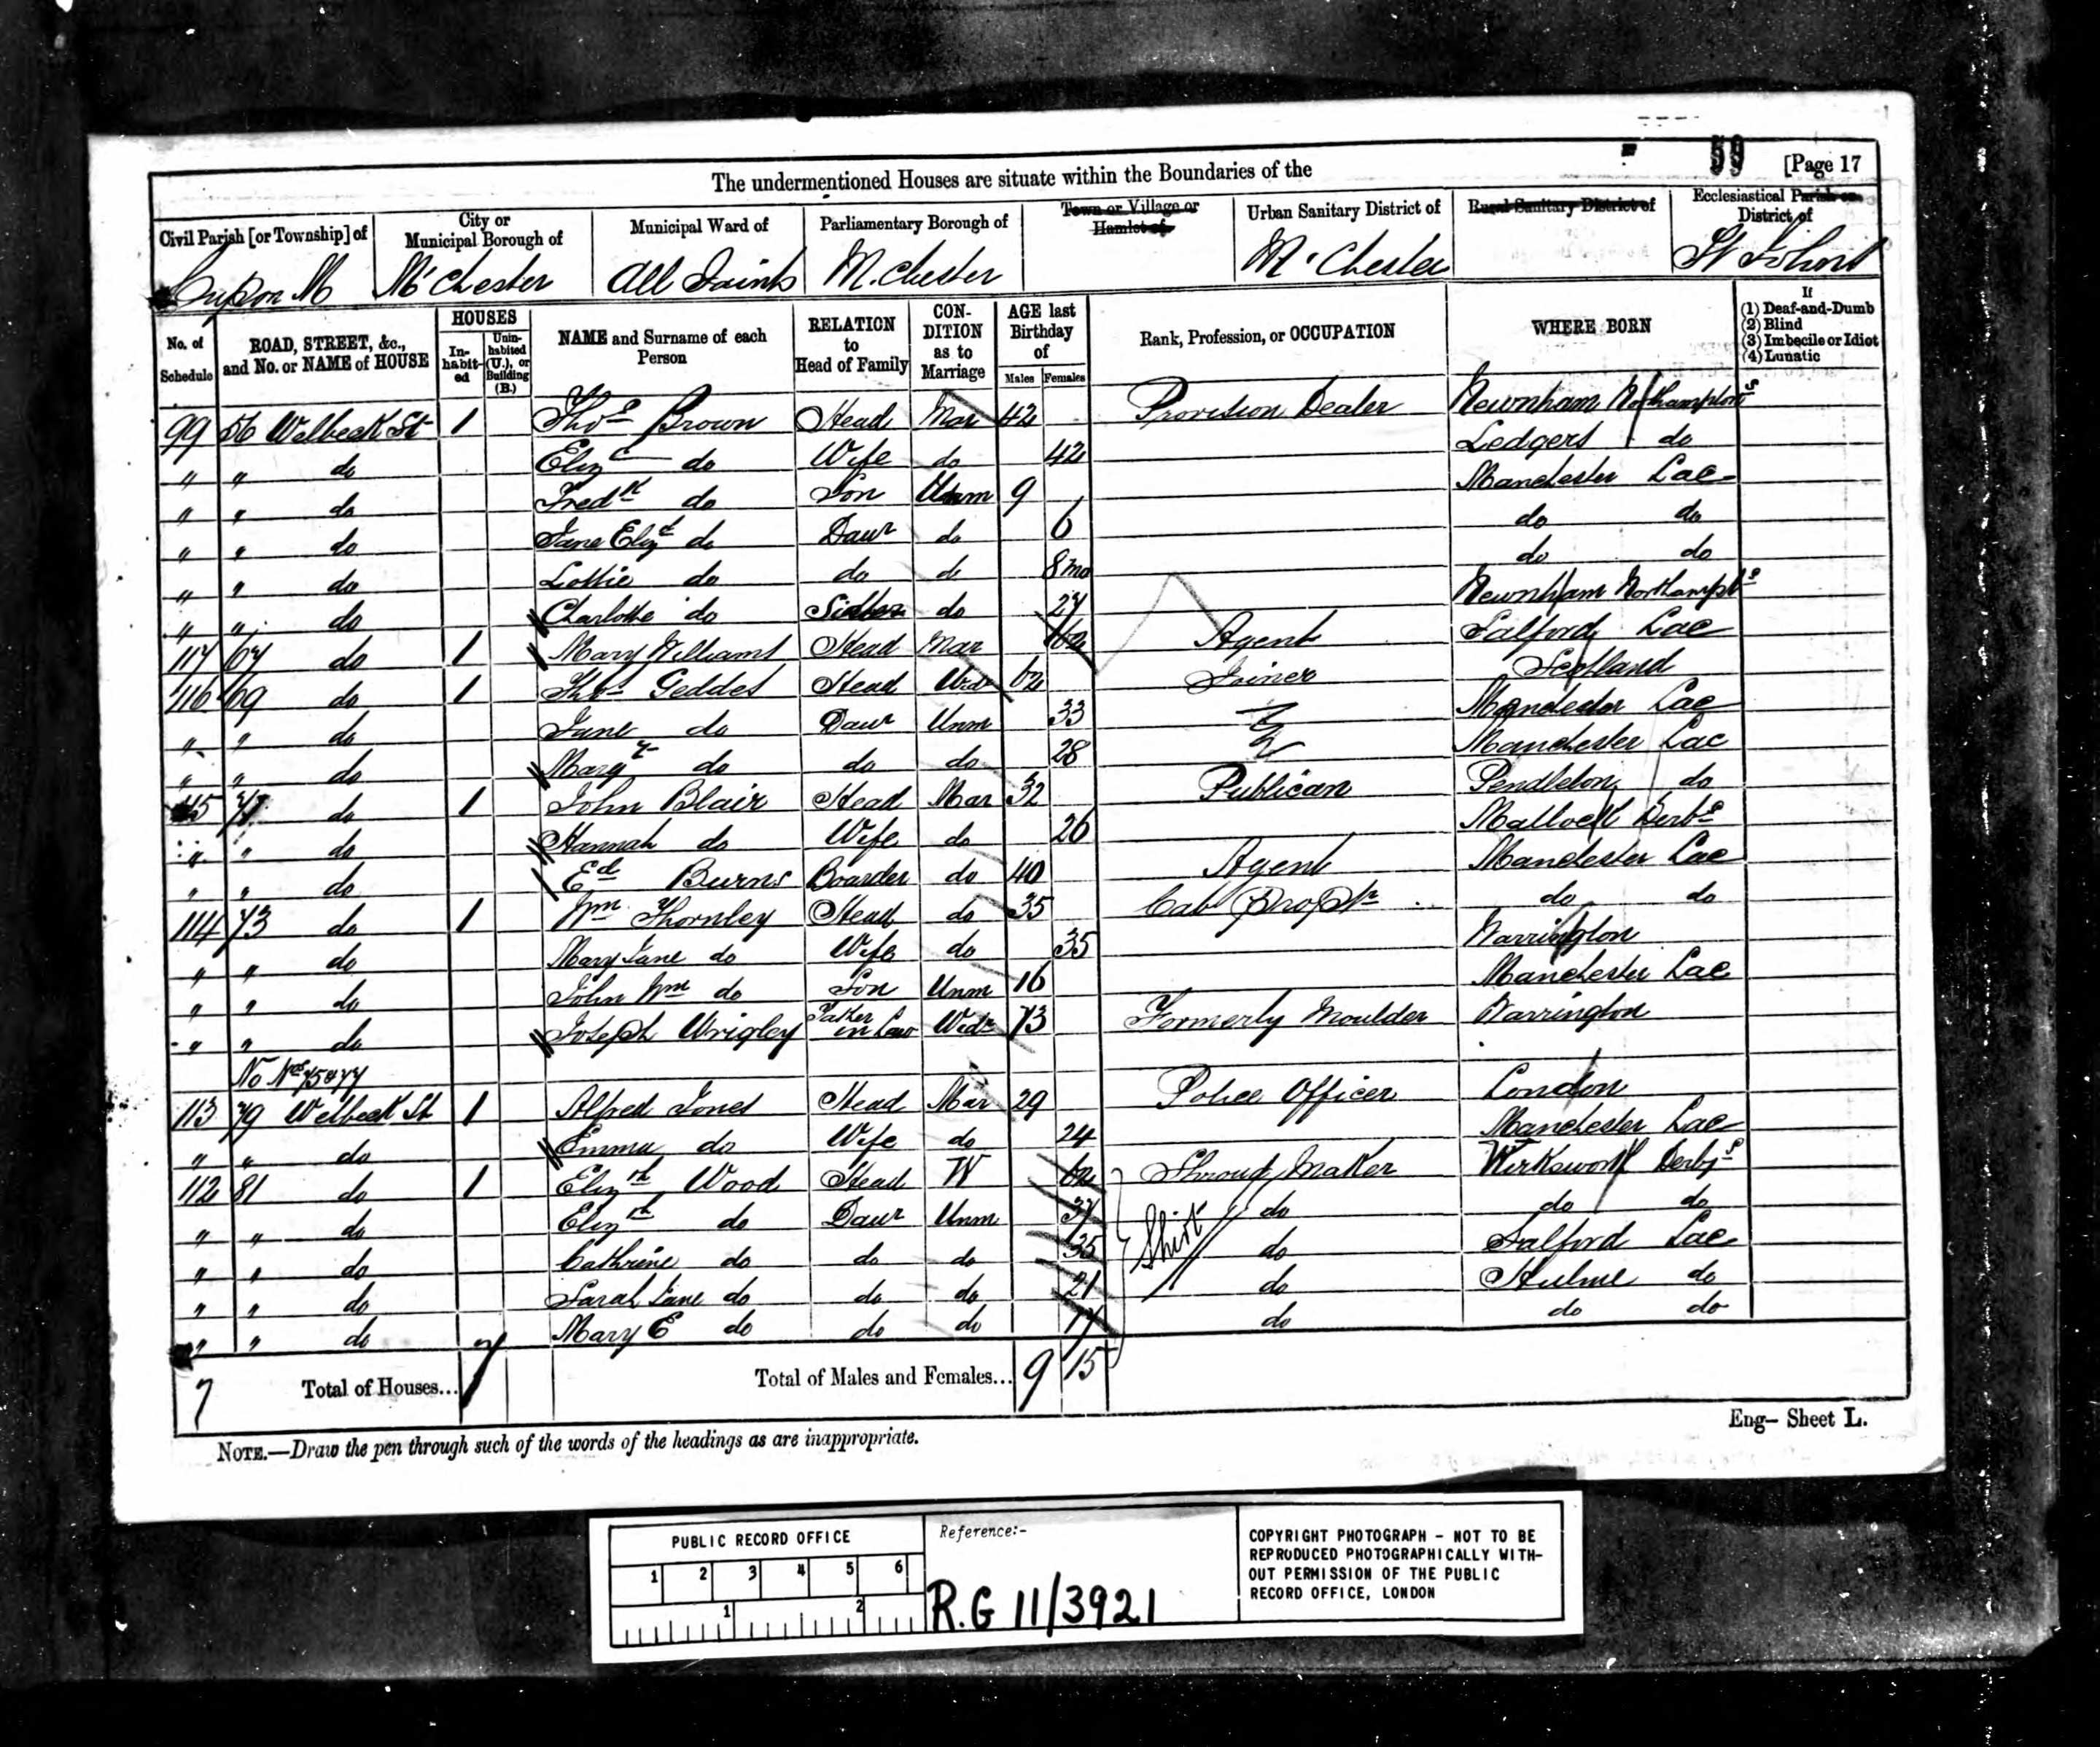 59 [Page 17
The undermentioned Houses are situate within the Boundaries of the
Civil Parish [or Township] of
City or Municipal Borough of
Municipal Ward of
Parliamentary Borough of
Town or Village or Hamlet of
Urban Sanitary District of
Rural Sanitary District of
Ecclesiastical Parish or District of
M'Chester All Saints M.Chester M'Chester St Johns
No. of Schedule
ROAD, STREET, &c., and No. or NAME of HOUSE
HOUSES
Inhabited
Uninhabited (U.), or Building (B.)
NAME and Surname of each Person
RELATION to Head of Family
CONDITION as to Marriage
AGE last Birthday of
Males Females
Rank, Profession, or OCCUPATION
WHERE BORN
If
(1) Deaf-and-Dumb
(2) Blind
(3) Imbecile or Idiot
(4) Lunatic
99 56 Welbeck St 1 Thos Brown Head Mar 42 Provision Dealer Newnham Northamptons
" " do Elizth do Wife do 42 Ledgers do
" " do Fredk do Son Unm 9 Manchester Lac
" " do Jane Elizt do Daur do 6 do do
" " do Lottie do do do 8mo do do
" " do Charlotte do Sister do 27 Newnham Northampts
117 67 do 1 Mary Williams Head Mar 62 Agent Salford Lac
116 69 do 1 Thos Geddes Head Widr 62 Joiner Scotland
" " do Jane do Daur Unm 33 Manchester Lac
" " do Margt do do do 28 Manchester Lac
115 71 do 1 John Blair Head Mar 32 Publican Pendleton do
" " do Hannah do Wife do 26 Matlock Derbs
" " do Ed Burns Boarder do 40 Agent Manchester Lac
114 73 do 1 Wm Thornley Head do 35 Cab Proptr do do
" " do Mary Jane do Wife do 35 Warrington
" " do John Wm do Son Unm 16 Manchester Lac
" " do Joseph Wrigley Father in Law Widr 73 Formerly Moulder Warrington
No Nos 75 & 77
113 79 Welbeck St 1 Alfred Jones Head Mar 29 Police Officer London
" " do Emma do Wife do 24 Manchester Lac
112 81 do 1 Elizth Wood Head W 62 Shroud Maker Wirksworth Derbys
" " do Elizth do Daur Unm 37 Shirt do do do
" " do Cathrine do do do 35 do Salford Lac
" " do Sarah Jane do do do 21 do Hulme do
" " do Mary E do do do 17 do do do
7 Total of Houses... 7 Total of Males and Females... 9 15
Eng– Sheet L.
NOTE.—Draw the pen through such of the words of the headings as are inappropriate.
PUBLIC RECORD OFFICE
1 2 3 4 5 6
1 2
Reference:-
R.G 11/3921
COPYRIGHT PHOTOGRAPH - NOT TO BE
REPRODUCED PHOTOGRAPHICALLY WITH-
OUT PERMISSION OF THE PUBLIC
RECORD OFFICE, LONDON